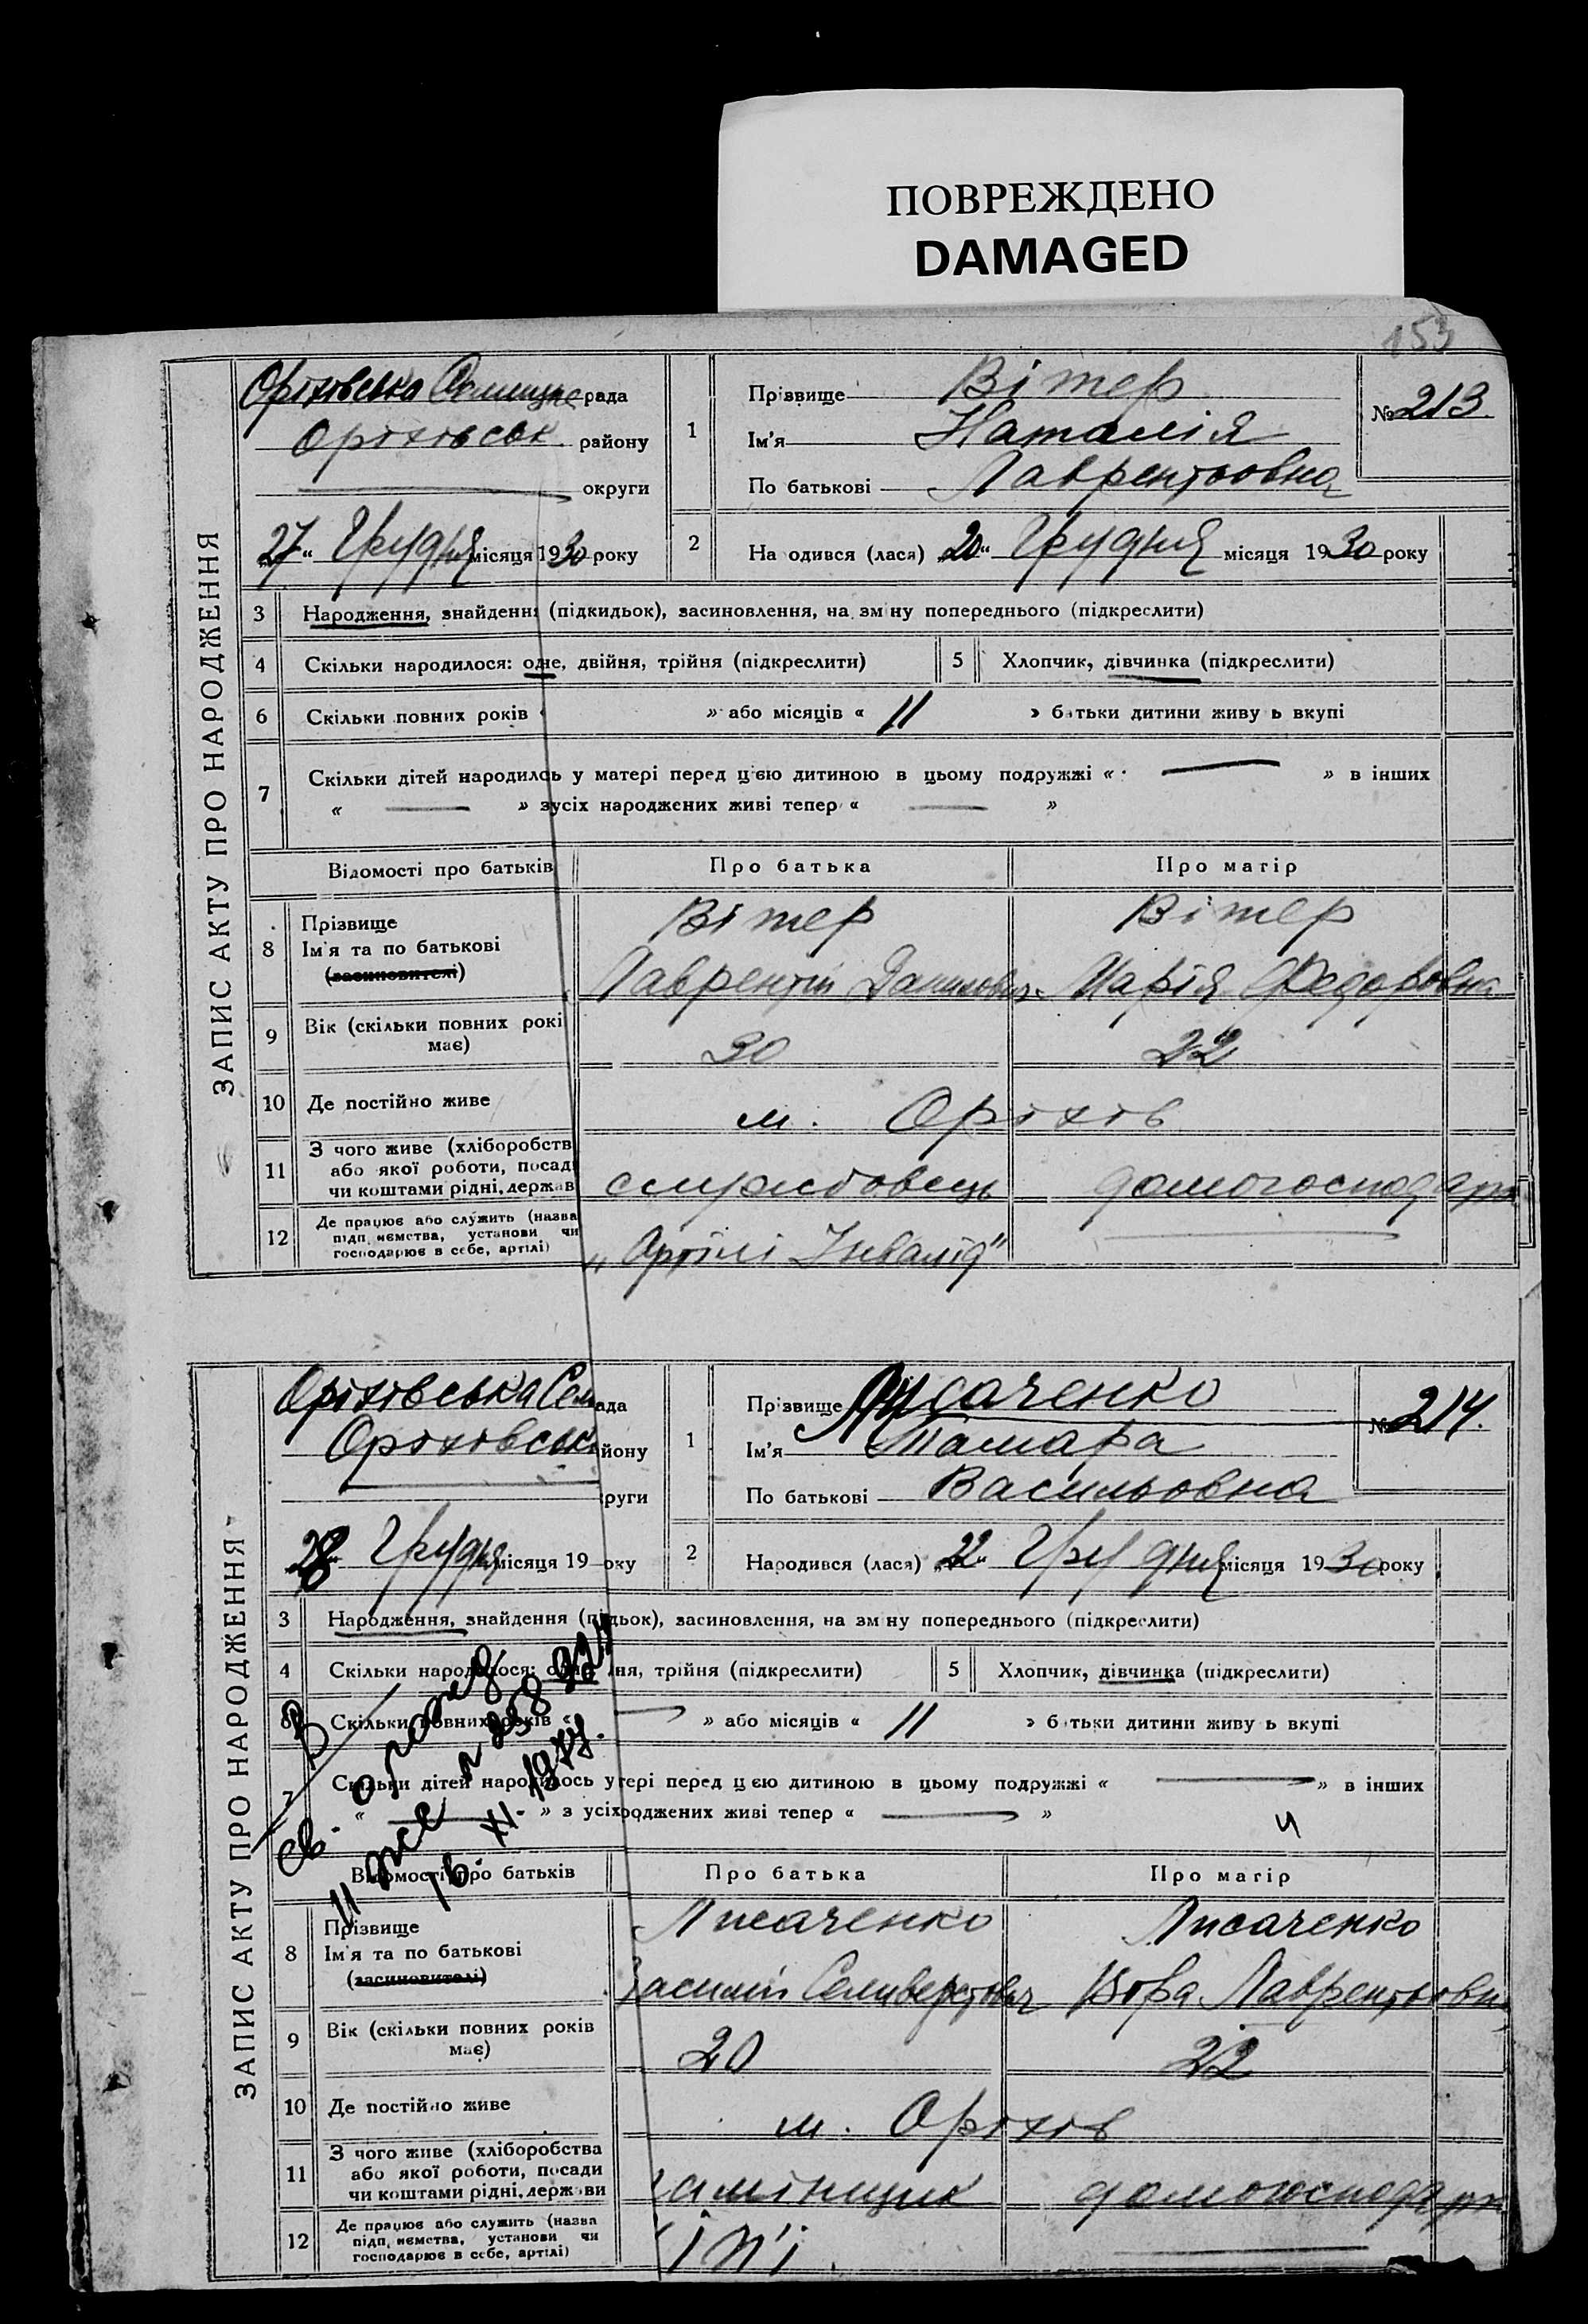 ПОВРЕЖДЕНО
DAMAGED
153
ЗАПИС АКТУ ПРО НАРОДЖЕННЯ
Оріхівська Селищне рада
Оріхівськ району
округи
27 " Грудня місяця 1930 року
1
Прізвище Вітер
Ім'я Наталія
По батькові Лаврентьовна
№ 213.
2
На одився (лася) „20" Грудня місяця 1930 року
3 Народження, знайденн (підкидьок), засиновлення, на зм ну попереднього (підкреслити)
4 Скільки народилося: одне, двійня, трійня (підкреслити)
5 Хлопчик, дівчинка (підкреслити)
6 Скільки повних років « » або місяців « 11 » батьки дитини живу ь вкупі
7 Скільки дітей народилось у матері перед цією дитиною в цьому подружжі « — » в інших
« — » зусіх народжених живі тепер « — »
Відомості про батьків
Про батька
Про матір
8 Прізвище
Ім'я та по батькові
(засиновителі)
Вітер
Лаврентій Данилович
Вітер
Марія Федоровна
9 Вік (скільки повних рокі
має)
30
22
10 Де постійно живе
м. Оріхів
11 З чого живе (хліборобств
або якої роботи, посад
чи коштами рідні, держав
домогосподарка
12 Де працює або служить (назва
підп иємства, установи чи
господарює в себе, артілі)
„Артілі Інвалід"
ЗАПИС АКТУ ПРО НАРОДЖЕННЯ
Оріхівська Сел ада
Оріховськ йону
руги
28 " Грудня місяця 19 оку
1
Прізвище Лисаченко
Ім'я Тамара
По батькові Васильовна
№ 214.
2
Народився (лася) „22" Грудня місяця 1930 року
3 Народження, знайдення (підьок), засиновлення, на зм ну попереднього (підкреслити)
4 Скільки народилося: одне ня, трійня (підкреслити)
5 Хлопчик, дівчинка (підкреслити)
6 Скільки повних років « — » або місяців « 11 » батьки дитини живу ь вкупі
7 Скільки дітей народилось у тері перед цією дитиною в цьому подружжі « — » в інших
« — » з усіх роджених живі тепер « — »
Відомості про батьків
Про батька
Про матір
8 Прізвище
Ім'я та по батькові
(засиновителі)
Лисаченко
Василій Селиверстович
Лисаченко
Віра Лаврентьовна
9 Вік (скільки повних років
має)
20
22
10 Де постійно живе
м. Оріхів
11 З чого живе (хліборобства
або якої роботи, посади
чи коштами рідні, держ ви
домогосподарка
12 Де працює або служить (назва
підп иємства, установи чи
господарює в себе, артілі)